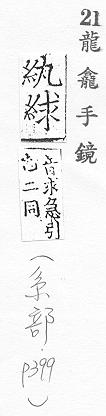 21龍龕手鏡
紈絿
音求急引
也二同
(糸部.p399)